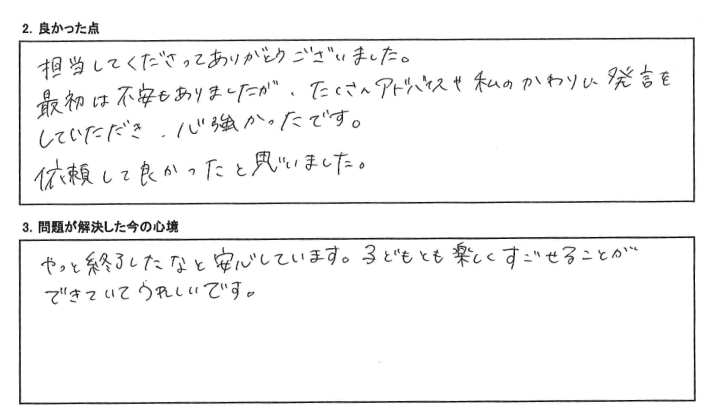 2. 良かった点
担当してくださってありがとうございました。
最初は不安もありましたが、たくさんアドバイスや私のかわりに発言を
していただき、心強かったです。
依頼して良かったと思いました。
3. 問題が解決した今の心境
やっと終了したなと安心しています。子どもとも楽しくすごせることが
できていてうれしいです。